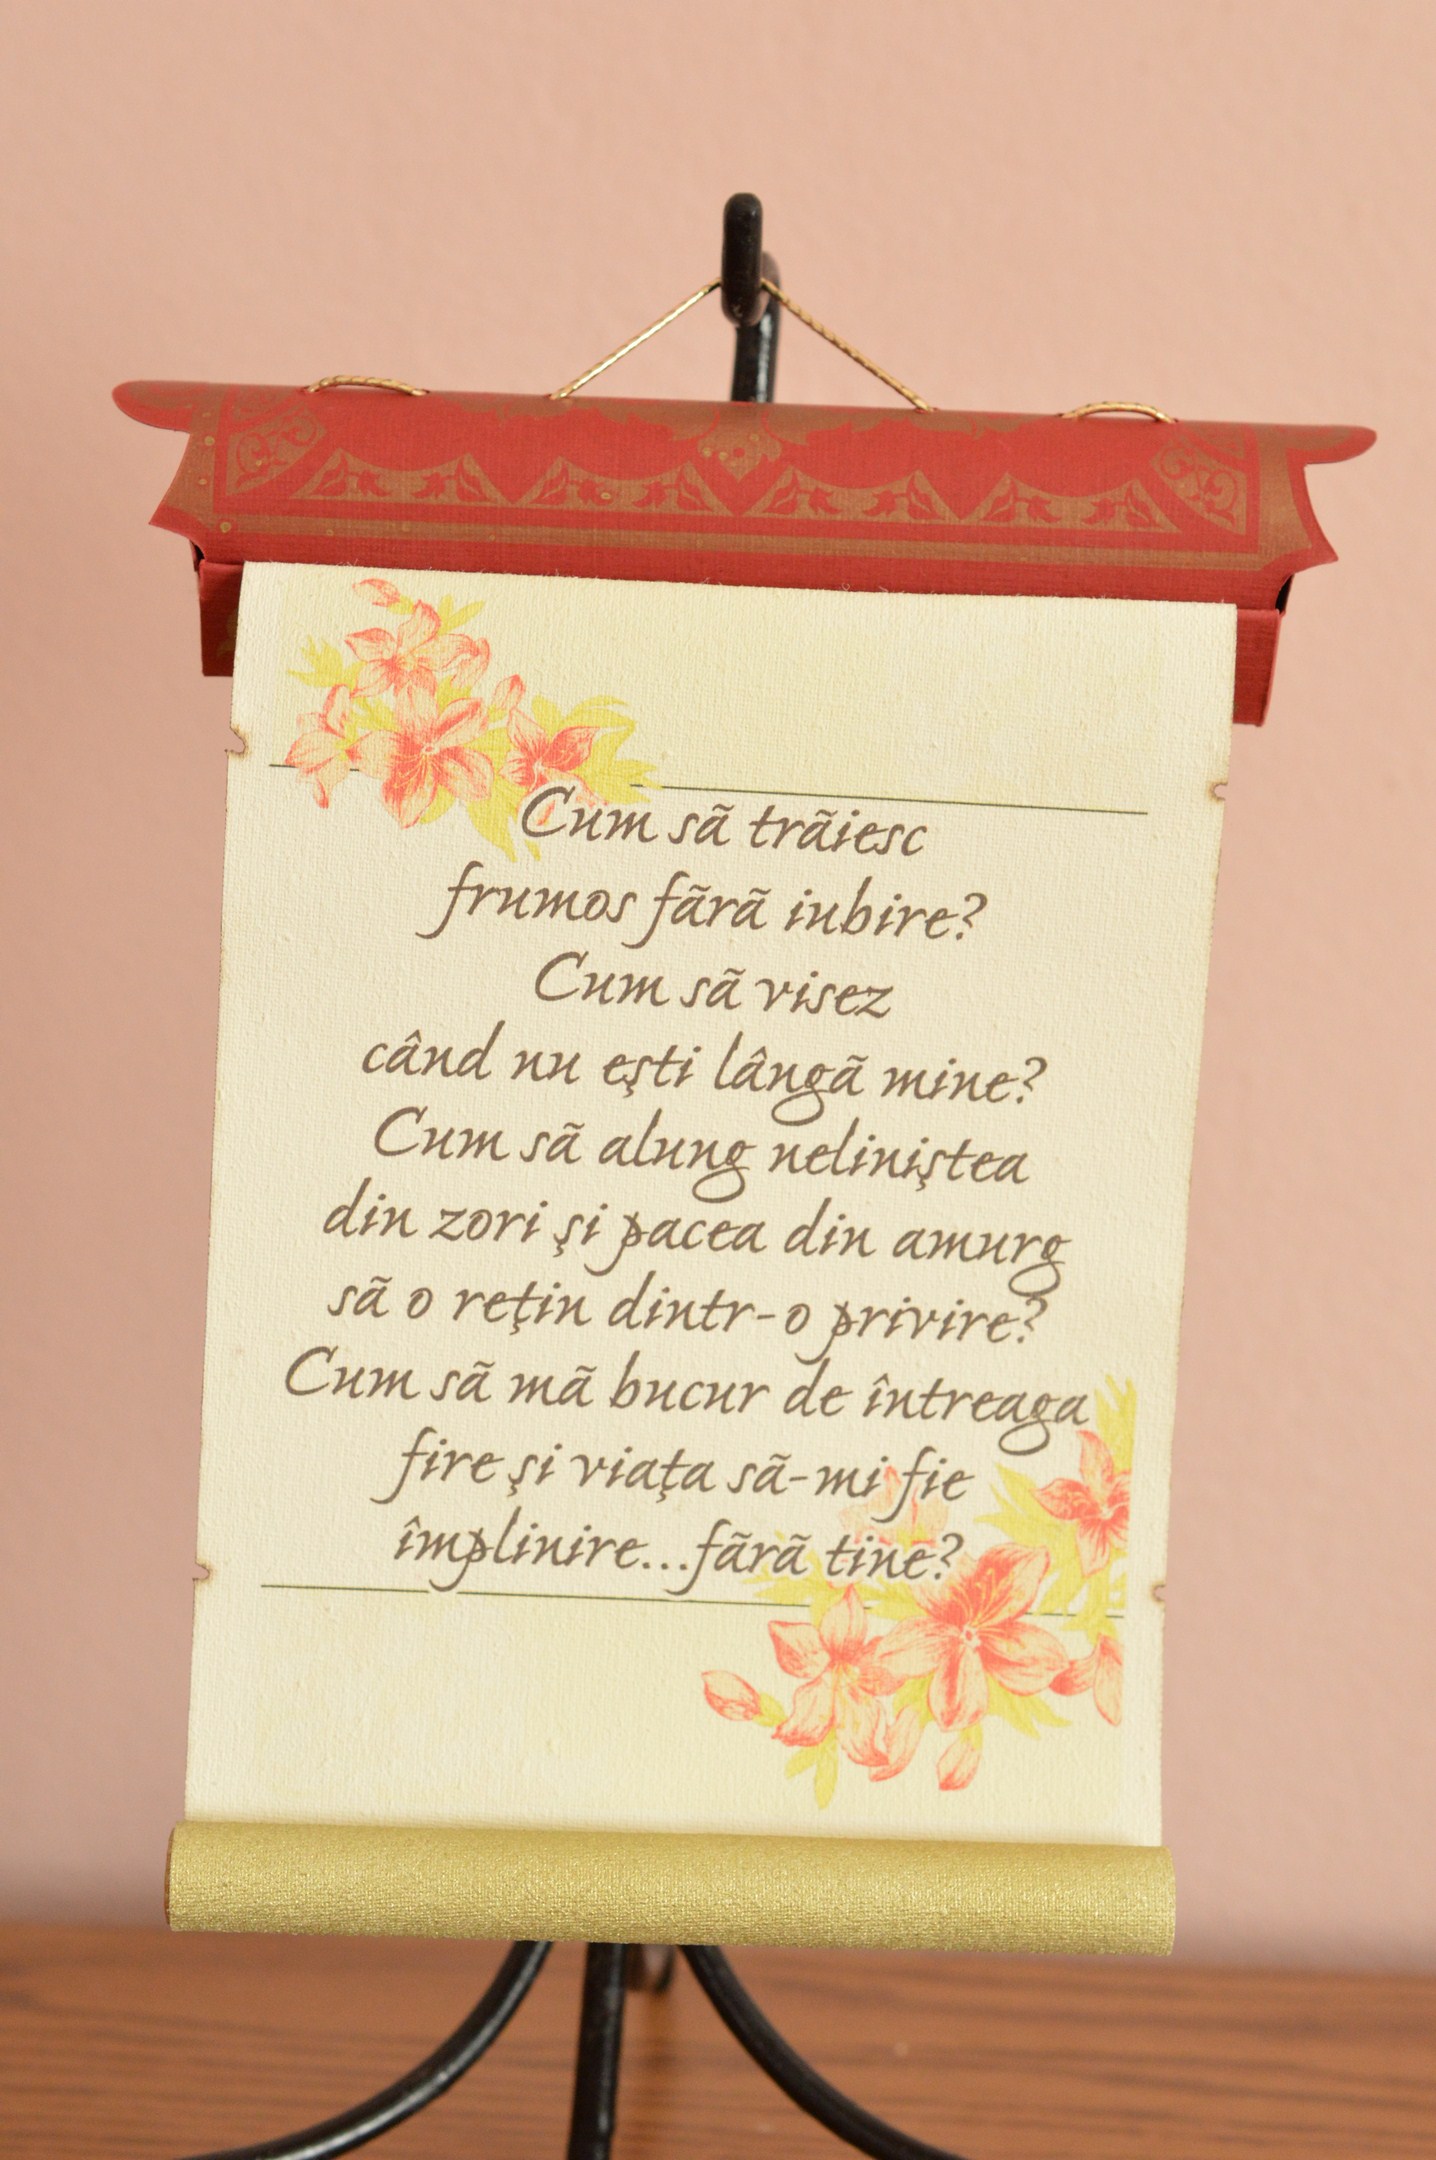 Cum sã trãiesc
frumos fãrã iubire?
Cum sã visez
când nu eşti lângã mine?
Cum sã alung neliniştea
din zori şi pacea din amurg
sã o reţin dintr-o privire?
Cum sã mã bucur de întreaga
fire şi viaţa sã-mi fie
împlinire...fãrã tine?